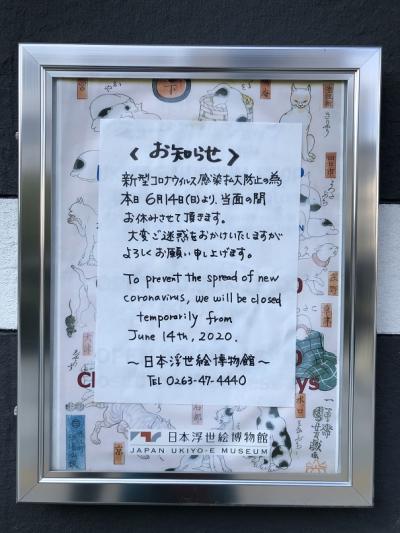 〈 お知らせ 〉
新型コロナウイルス感染拡大防止の為
本日 6月14日(日)より、当面の間
お休みさせて頂きます。
大変ご迷惑をおかけいたしますが
よろしくお願い申し上げます。
To prevent the spread of new
coronavirus, we will be closed
temporarily from
June 14th, 2020.
～日本浮世絵博物館～
TEL 0263-47-4440
日本浮世絵博物館
JAPAN UKIYO-E MUSEUM